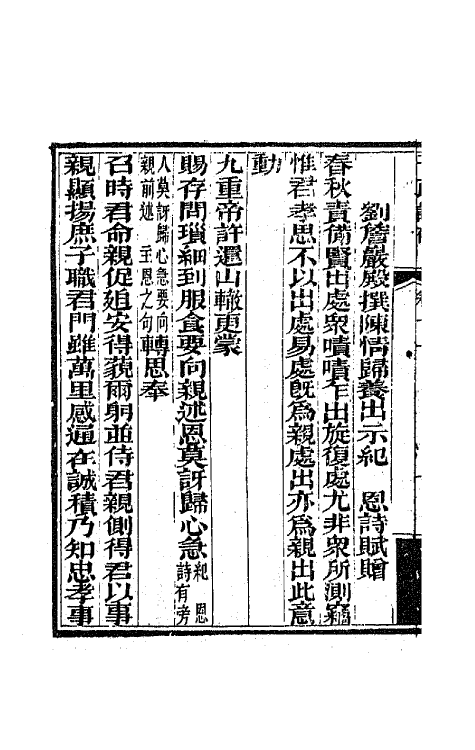 劉詹嚴殿撰陳情歸養出示紀　恩詩賦贈
春秋責備賢出處衆嘖嘖乍出旋復處尤非衆所測竊
惟君孝思不以出處易處旣爲親處出亦爲親出此意
動
九重帝許還山轍更蒙
賜存問瑣細到服食要向親述恩莫訝歸心急紀　恩詩有旁
人莫訝歸心急要向
親前述　主恩之句轉思奉
召時君命親促廹安得藐爾躬並侍君親側得君以事
親顯揚庶子職君門雖萬里感通在誠積乃知忠孝事